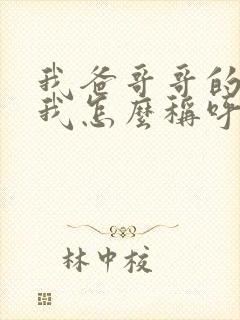 我爸哥哥的
我怎麼稱呼
林中校